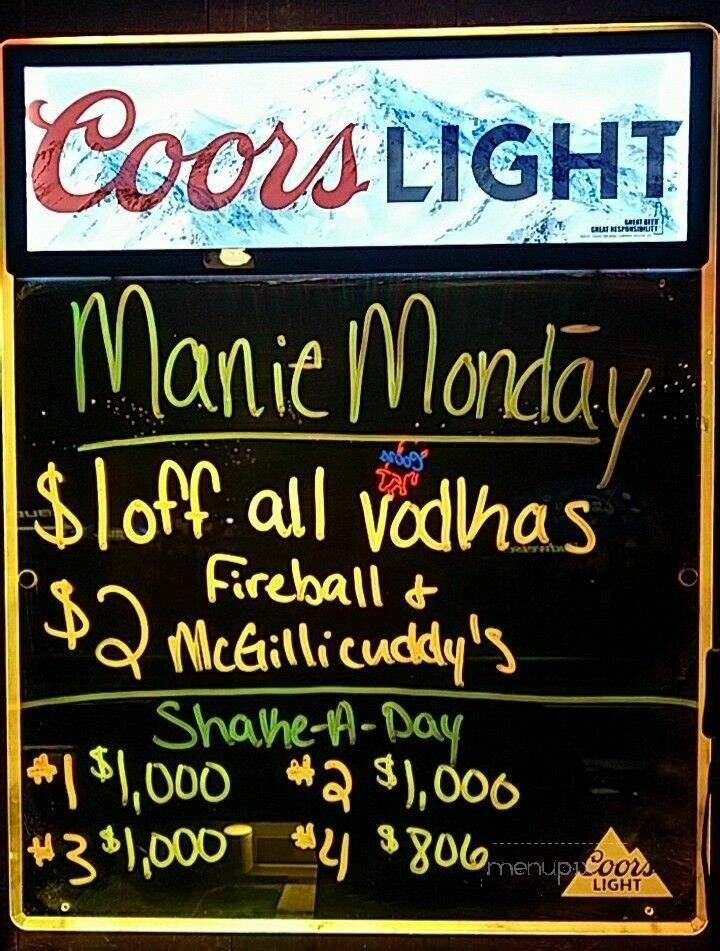 Coors LIGHT
GREAT BEER
GREAT RESPONSIBILITY
Manic Monday
$1 off all vodkas
$2 Fireball &
McGillicuddy's
Shake-A-Day
#1 $1,000 #2 $1,000
#3 $1,000 #4 $806
menupix
Coors
LIGHT